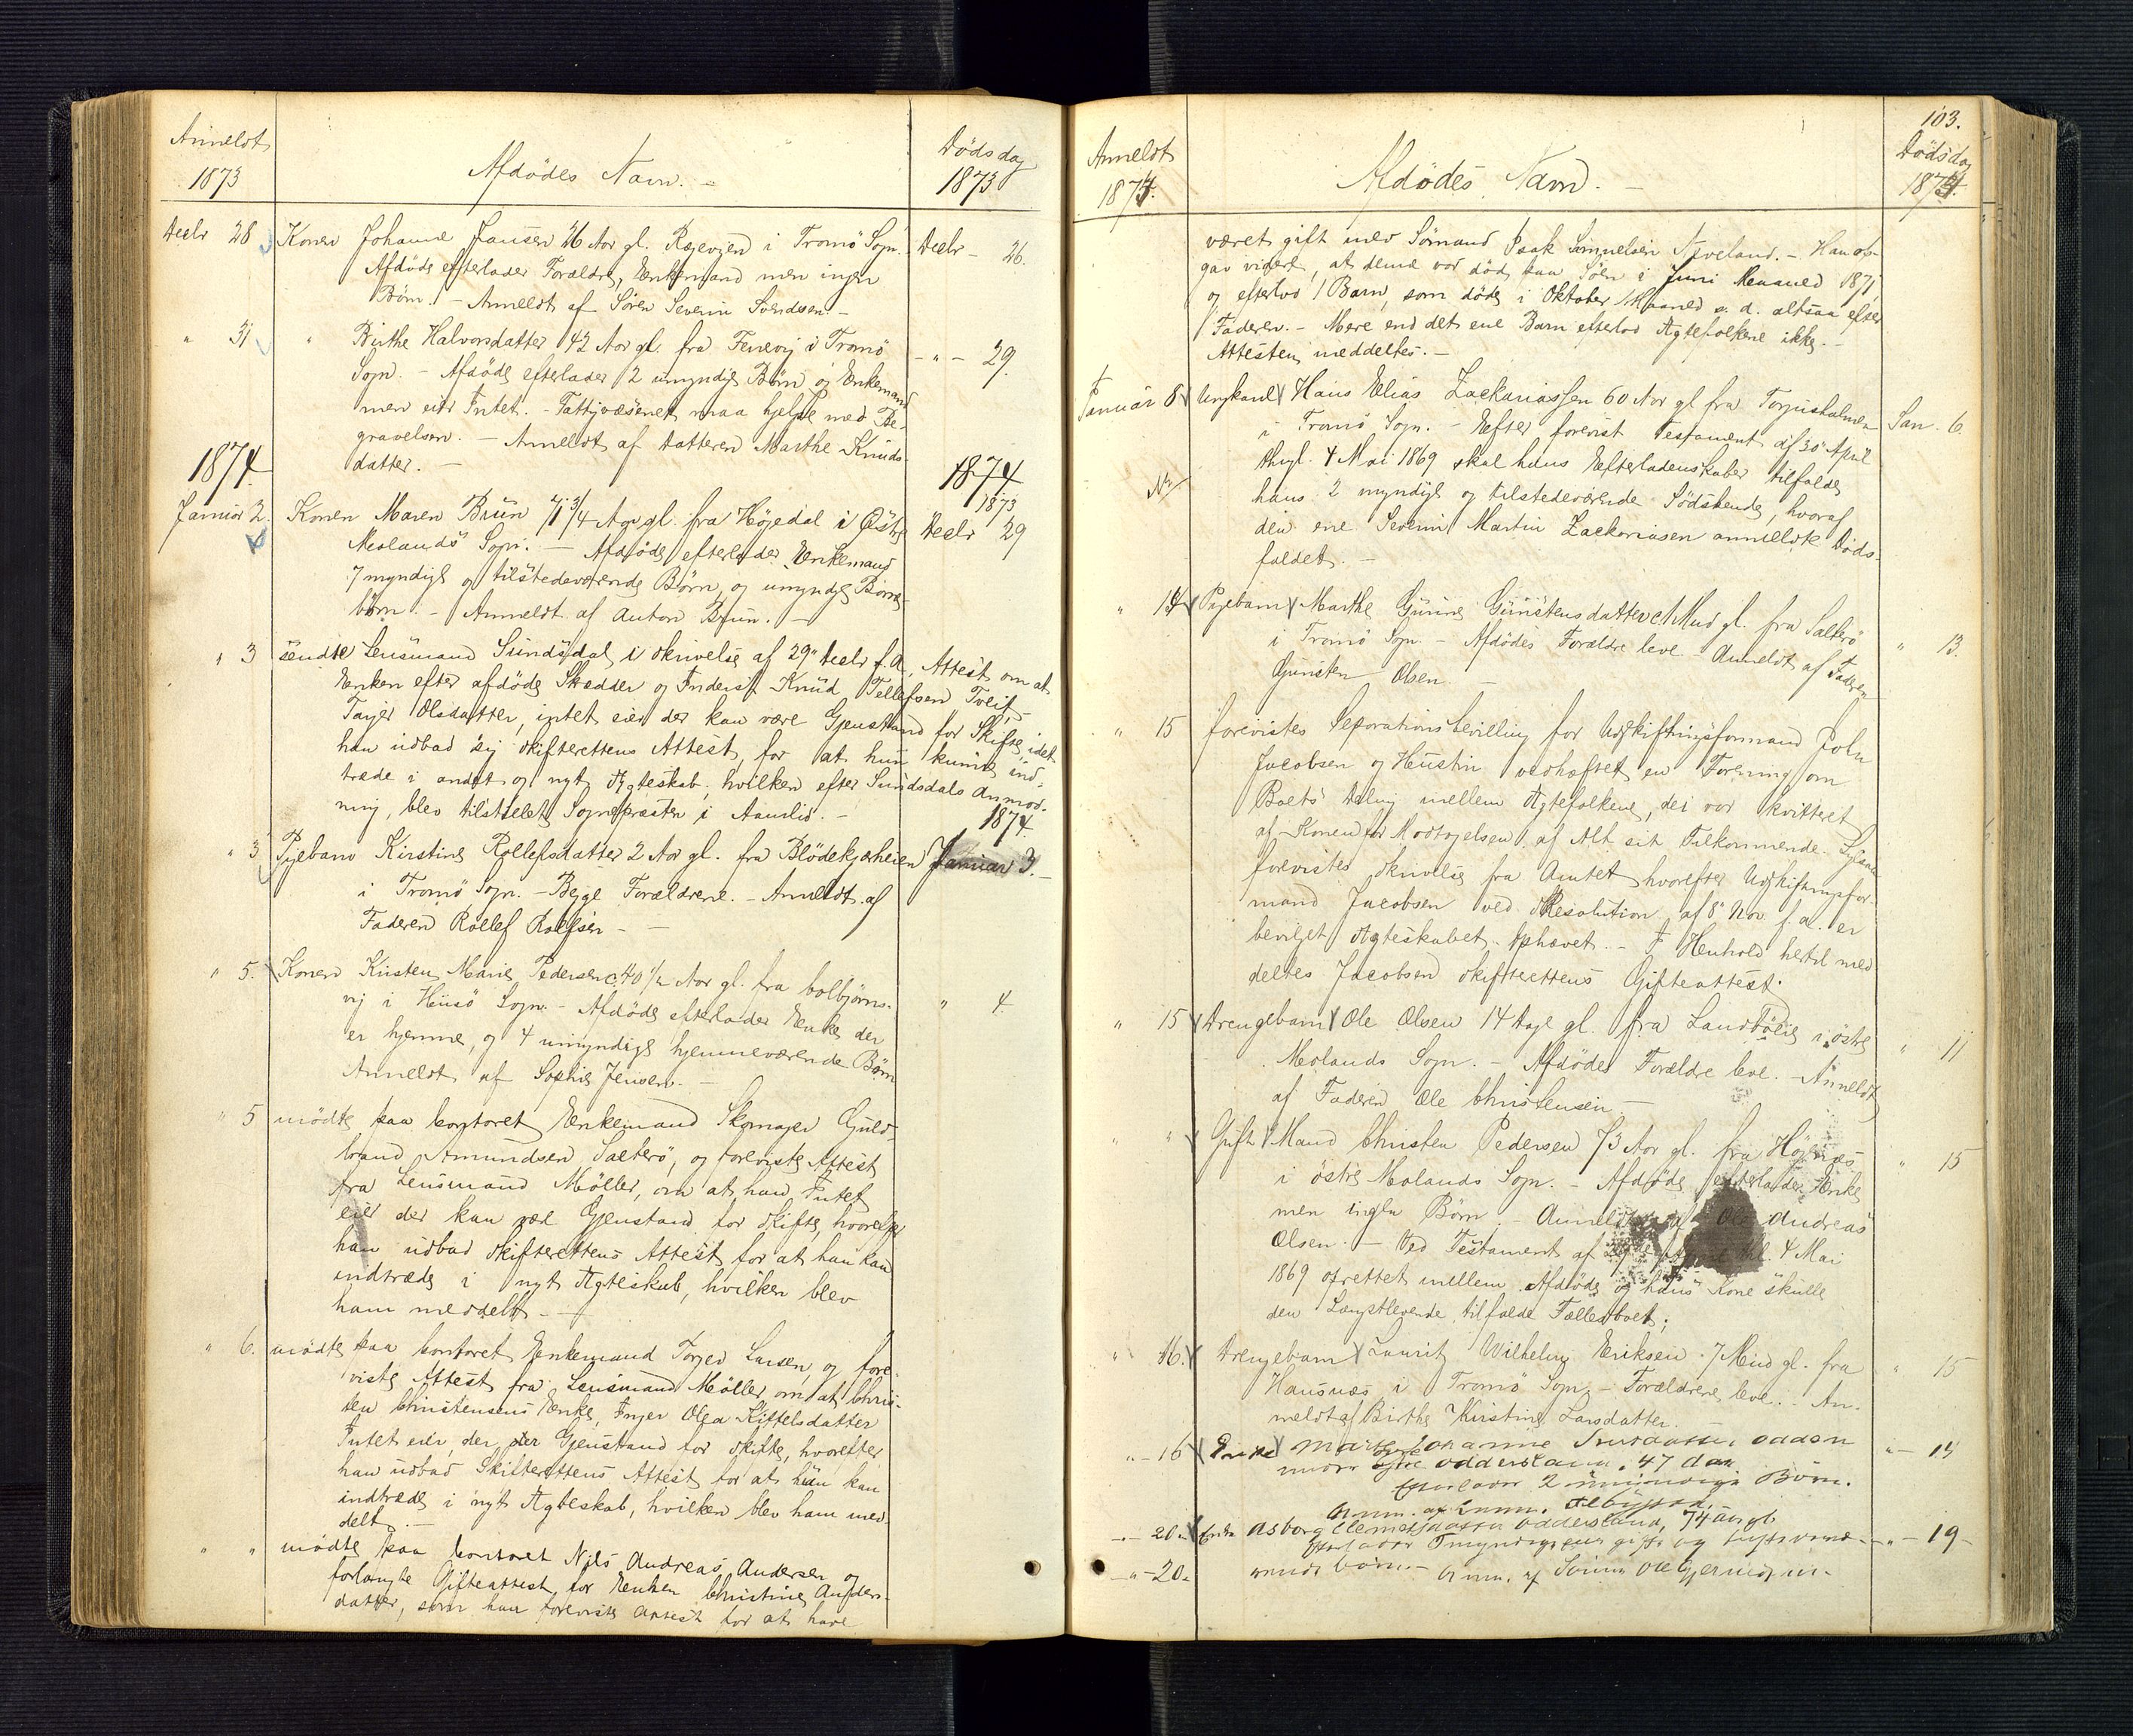 Anmeldt
1873
Afdödes Navn. -
Dödsdag
1873
Decbr 28 Konen Johanne Jansen 26 Aar gl. Rægevigen i Tromö Sogn. Decbr - 26.
Afdöde efterlader Forældre, Enkemand men ingen
Börn. - Anmeldt af Sören Severin Svendsen -
" 31 " Birthe Halvorsdatter 42 Aar gl. fra Fenevig i Tromö - " - 29.
Sogn. - Afdöde efterlader 2 umyndige Börn og Enkemand
men eier Intet. - Fattigvæsenet maa hjelpe med Be-
gravelsen. - Anmeldt af Datteren Marthe Knuds-
datter. -
1874 1874
1873
Januar 2. Konen Maren Brun 71 3/4 Aar gl. fra Höjedal i Östre Decbr 29
Molands Sogn. - Afdöde efterlader Enkemand
7 myndige og tilstedeværende Börn og umyndige Börne-
börn. - Anmeldt af Anton Brun. -
" 3 sendte Lensmand Sundsdal i Skrivelse af 29 Decbr f. A. Attest om at
Enken efter afdöde Skrædder og Inderst Knud Tellefsen Tveit,
Tarjer Olsdatter, intet eier der kan være Gjenstand for Skifte, idet
han udbad sig Skifterettens Attest, for at hun kunne ind-
træde i andet og nyt Ægteskab, hvilken efter Sundsdals Anmod-
ning, blev tilstillet Sognepræsten i Aamlid. -
1874
" 3 Pigebarn Kirstine Rollefsdatter 2 Aar gl. fra Blödekjærheien Januar 3. -
i Tromö Sogn. - Begge Forældrene. - Anmeldt af
Faderen Rollef Rolfsen -
" 5. Konen Kirsten Marie Pedersen c. 40 1/2 Aar gl. fra Colbjörns- " 4.
vig i Hisö Sogn. - Afdöde efterlader Enke, der
er hjemme, og 4 umyndige hjemmeværende Börn
Anmeldt af Sophie Jensen. -
" 5 mödte paa Contoret Enkemand Skomager Guld-
brand Amundsen Salterö, og foreviste Attest
fra Lensmand Möller, om at han Intet
eier der kan være Gjenstand for Skifte, hvorefter
han udbad Skifterettens Attest for at han kan
indtræde i nyt Ægteskab, hvilken blev
ham meddelt -
" 6. mödte paa Contoret Enkemand Torger Larsen, og fore-
viste Attest fra Lensmand Möller om at Chris-
ten Christensens Enke, Inger Olea Kittelsdatter
Intet eier, der er Gjenstand for Skifte, hvorefter
han udbad Skifterettens Attest for at hun kan
indtræde i nyt Ægteskab, hvilken blev ham med-
delt. -
" " mödte paa Contoret Nils Andreas Andersen og
forlangte Gifteattest for Enken Christine Anders-
datter, som han foreviste Attest for at have
103.
Anmeldt
1874.
Afdödes Navn. -
Dödsdag
1874.
været gift med Sömand Isak Samuelsen Niveland. - Han op-
gav videre, at denne var död paa Söen i Juni Maaned 1871
og efterlod 1 Barn, som döde i Oktober Maaned s. A. altsaa efter
Faderen. - Mere end det ene Barn efterlod Ægtefolkene ikke. -
Attesten meddeltes. -
Januar 8 Ungkarl Hans Elias Zackariassen 60 Aar gl fra Torjusholmen Jan. 6.
i Tromö Sogn. - Efter forevist Testament af 30 April
thgl. 4 Mai 1869 skal hans Efterladenskaber tilfalde
hans 2 myndige og tilstedeværende Södskende, hvoraf
den ene Severin Martin Zackariasen anmeldte Döds-
faldet. -
" 14 Pigebarn Marthe Gurine Gunstensdatter 1 Mnd gl. fra Salterö " 13.
i Tromö Sogn. - Afdödes Forældre leve. - Anmeldt af Faderen
Gunsten Olsen. -
" 15 forevistes Separationsbevilling for Udskiftningsformand John
Jacobsen og Hustru vedhæftet en Forening om
Boets Deling mellem Ægtefolkene, der var kvitteret
af Konen for Modtagelsen af Alt sit Tilkommende. Ligesaa
forevistes Skrivelse fra Amtet hvorefter Udskiftningsfor-
mand Jacobsen ved Resolution af 8 Nov. f. A. er
bevilget Ægteskabet ophævet. - I Henhold hertil med-
deltes Jacobsen Skifterettens Gifteattest.
" 15 Drengebarn Ole Olsen 14 Dage gl. fra Landbölie i Östre " 11
Molands Sogn. - Afdödes Forældre leve. - Anmeldt
af Faderen Ole Christensen -
" " Gift Mand Christen Pedersen 73 Aar gl. fra Höjenæs " 15
i östre Molands Sogn. - Afdöde efterlader Enke
men ingen Börn. - Anmeldt af Ole Andreas
Olsen. - Ved Testament af 4 Mai
1869 oprettet mellem Afdöde og hans Kone skulle
den Længstlevende tilfalde Fællesboet;
" 16. Drengebarn Lauritz Wilhelm Eriksen 7 Mnd gl. fra " 15
Hausnæs i Tromö Sogn. - Forældrene leve. - An-
meldt af Birthe Kirstine Larsdatter. -
" - 16 Enke Johanne " - 14
under Oddersland, 47
Efterlader 2 umyndige Börn.
Anm. af Lnm.
- " - 20 Enke Asborg Oddersland, 74 Aar gl. - " - 19 -
Efterlader
- " - 20. Börn. - Anm. af